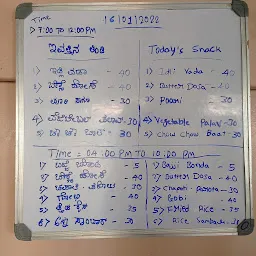 Time 16/01/2022
→ 7:00 TO 12:00 PM
ಇವತ್ತಿನ ತಿಂಡಿ Today's Snack
1) ಇಡ್ಲಿ ವಡಾ - 40 1) Idli Vada - 40
2) ಬೆಣ್ಣೆ ದೋಸೆ - 40 2) Butter Dosa - 40
3) ಪೂರಿ - 30 3) Poori - 30
4) ವೆಜಿಟೇಬಲ್ ಪಲಾವ್ - 30 4) Vegetable Palav - 30
5) ಚೌ ಚೌ ಬಾತ್ - 30 5) Chow Chow Baat - 30
Time = 04:00 PM TO 10:00 PM
1) - 5 1) Bonda - 5
2) ಬೆಣ್ಣೆ ದೋಸೆ - 40 2) Butter Dosa - 40
3) - 30 3) - 30
4) ಗೋಬಿ - 40 4) Gobi - 40
5) - 35 5) Fried Rice - 35
6) - 30 6) Rice Sambar - 30